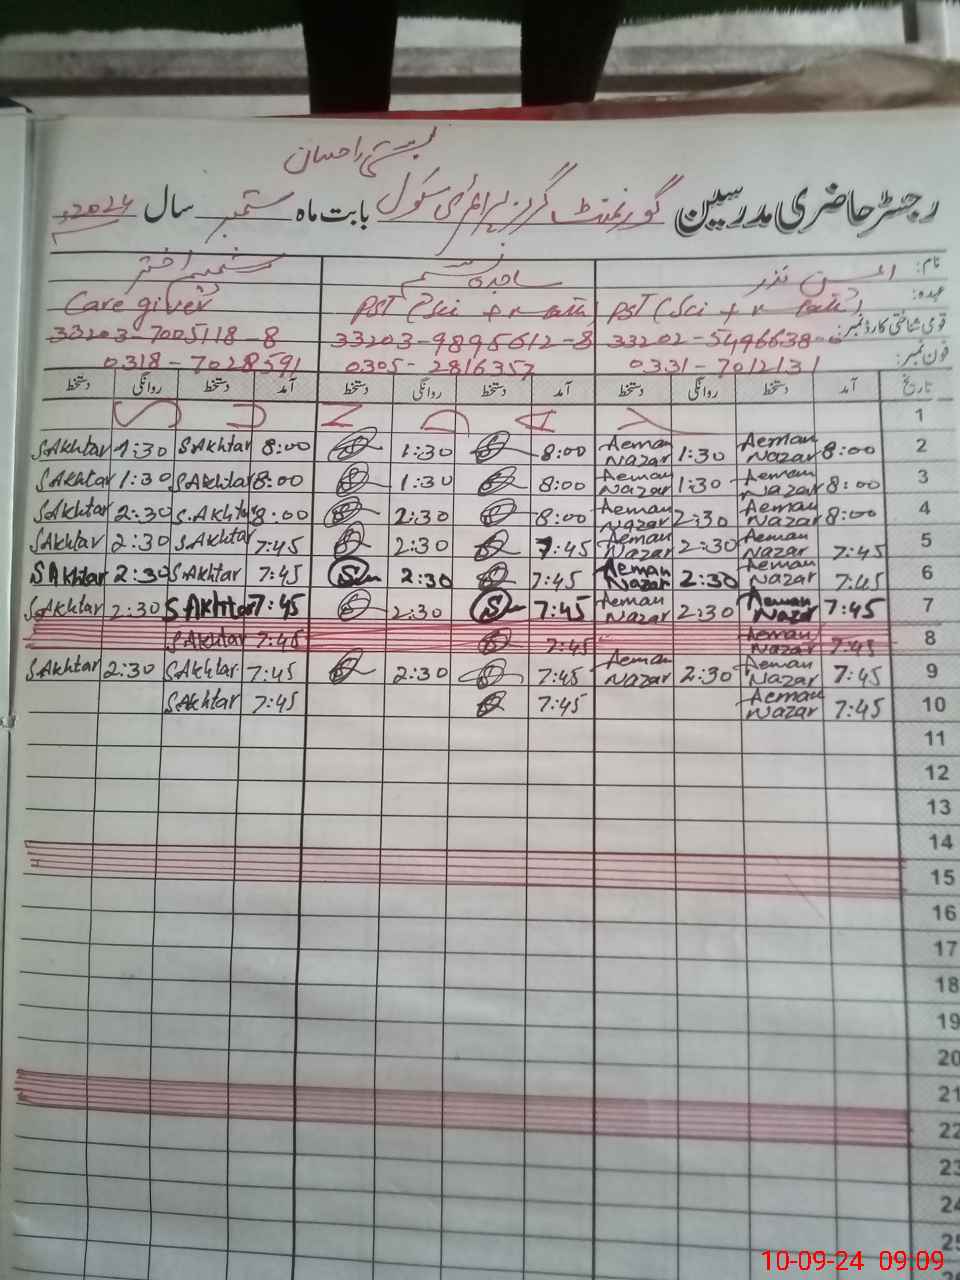 بستی احسان
رجسٹر حاضری مدرسین گورنمنٹ گرلز پرائمری سکول بابت ماہ ستمبر سال 2024ء
نام: نذر ساجدہ نسیم شمیم اختر
عہدہ: PST (Sci + math) PST (Sci + math) Care giver
قومی شناختی کارڈ نمبر: 33202-5496638 33203-9895612-8 33203-7005118-8
فون نمبر: 0331-7012131 0305-2816357 0318-7028591
تاریخ آمد دستخط روانگی دستخط آمد دستخط روانگی دستخط آمد دستخط روانگی دستخط
1 S U N D A Y
2 8:00 Aeman Nazar 1:30 Aeman Nazar 8:00 1:30 8:00 S.Akhtar 1:30 S.Akhtar
3 8:00 Aeman Nazar 1:30 Aeman Nazar 8:00 1:30 8:00 S.Akhtar 1:30 S.Akhtar
4 8:00 Aeman Nazar 2:30 Aeman Nazar 8:00 2:30 8:00 S.Akhtar 2:30 S.Akhtar
5 7:45 Aeman Nazar 2:30 Aeman Nazar 7:45 2:30 7:45 S.Akhtar 2:30 S.Akhtar
6 7:45 Aeman Nazar 2:30 Aeman Nazar 7:45 2:30 7:45 S.Akhtar 2:30 S.Akhtar
7 7:45 Aeman Nazar 2:30 Aeman Nazar 7:45 2:30 7:45 S.Akhtar 2:30 S.Akhtar
8 7:45 Aeman Nazar 7:45 7:45 S.Akhtar
9 7:45 Aeman Nazar 2:30 Aeman Nazar 7:45 2:30 7:45 S.Akhtar 2:30 S.Akhtar
10 7:45 Aeman Nazar 7:45 7:45 S.Akhtar
11
12
13
14
15
16
17
18
19
20
21
22
23
24
25
10-09-24 09:09